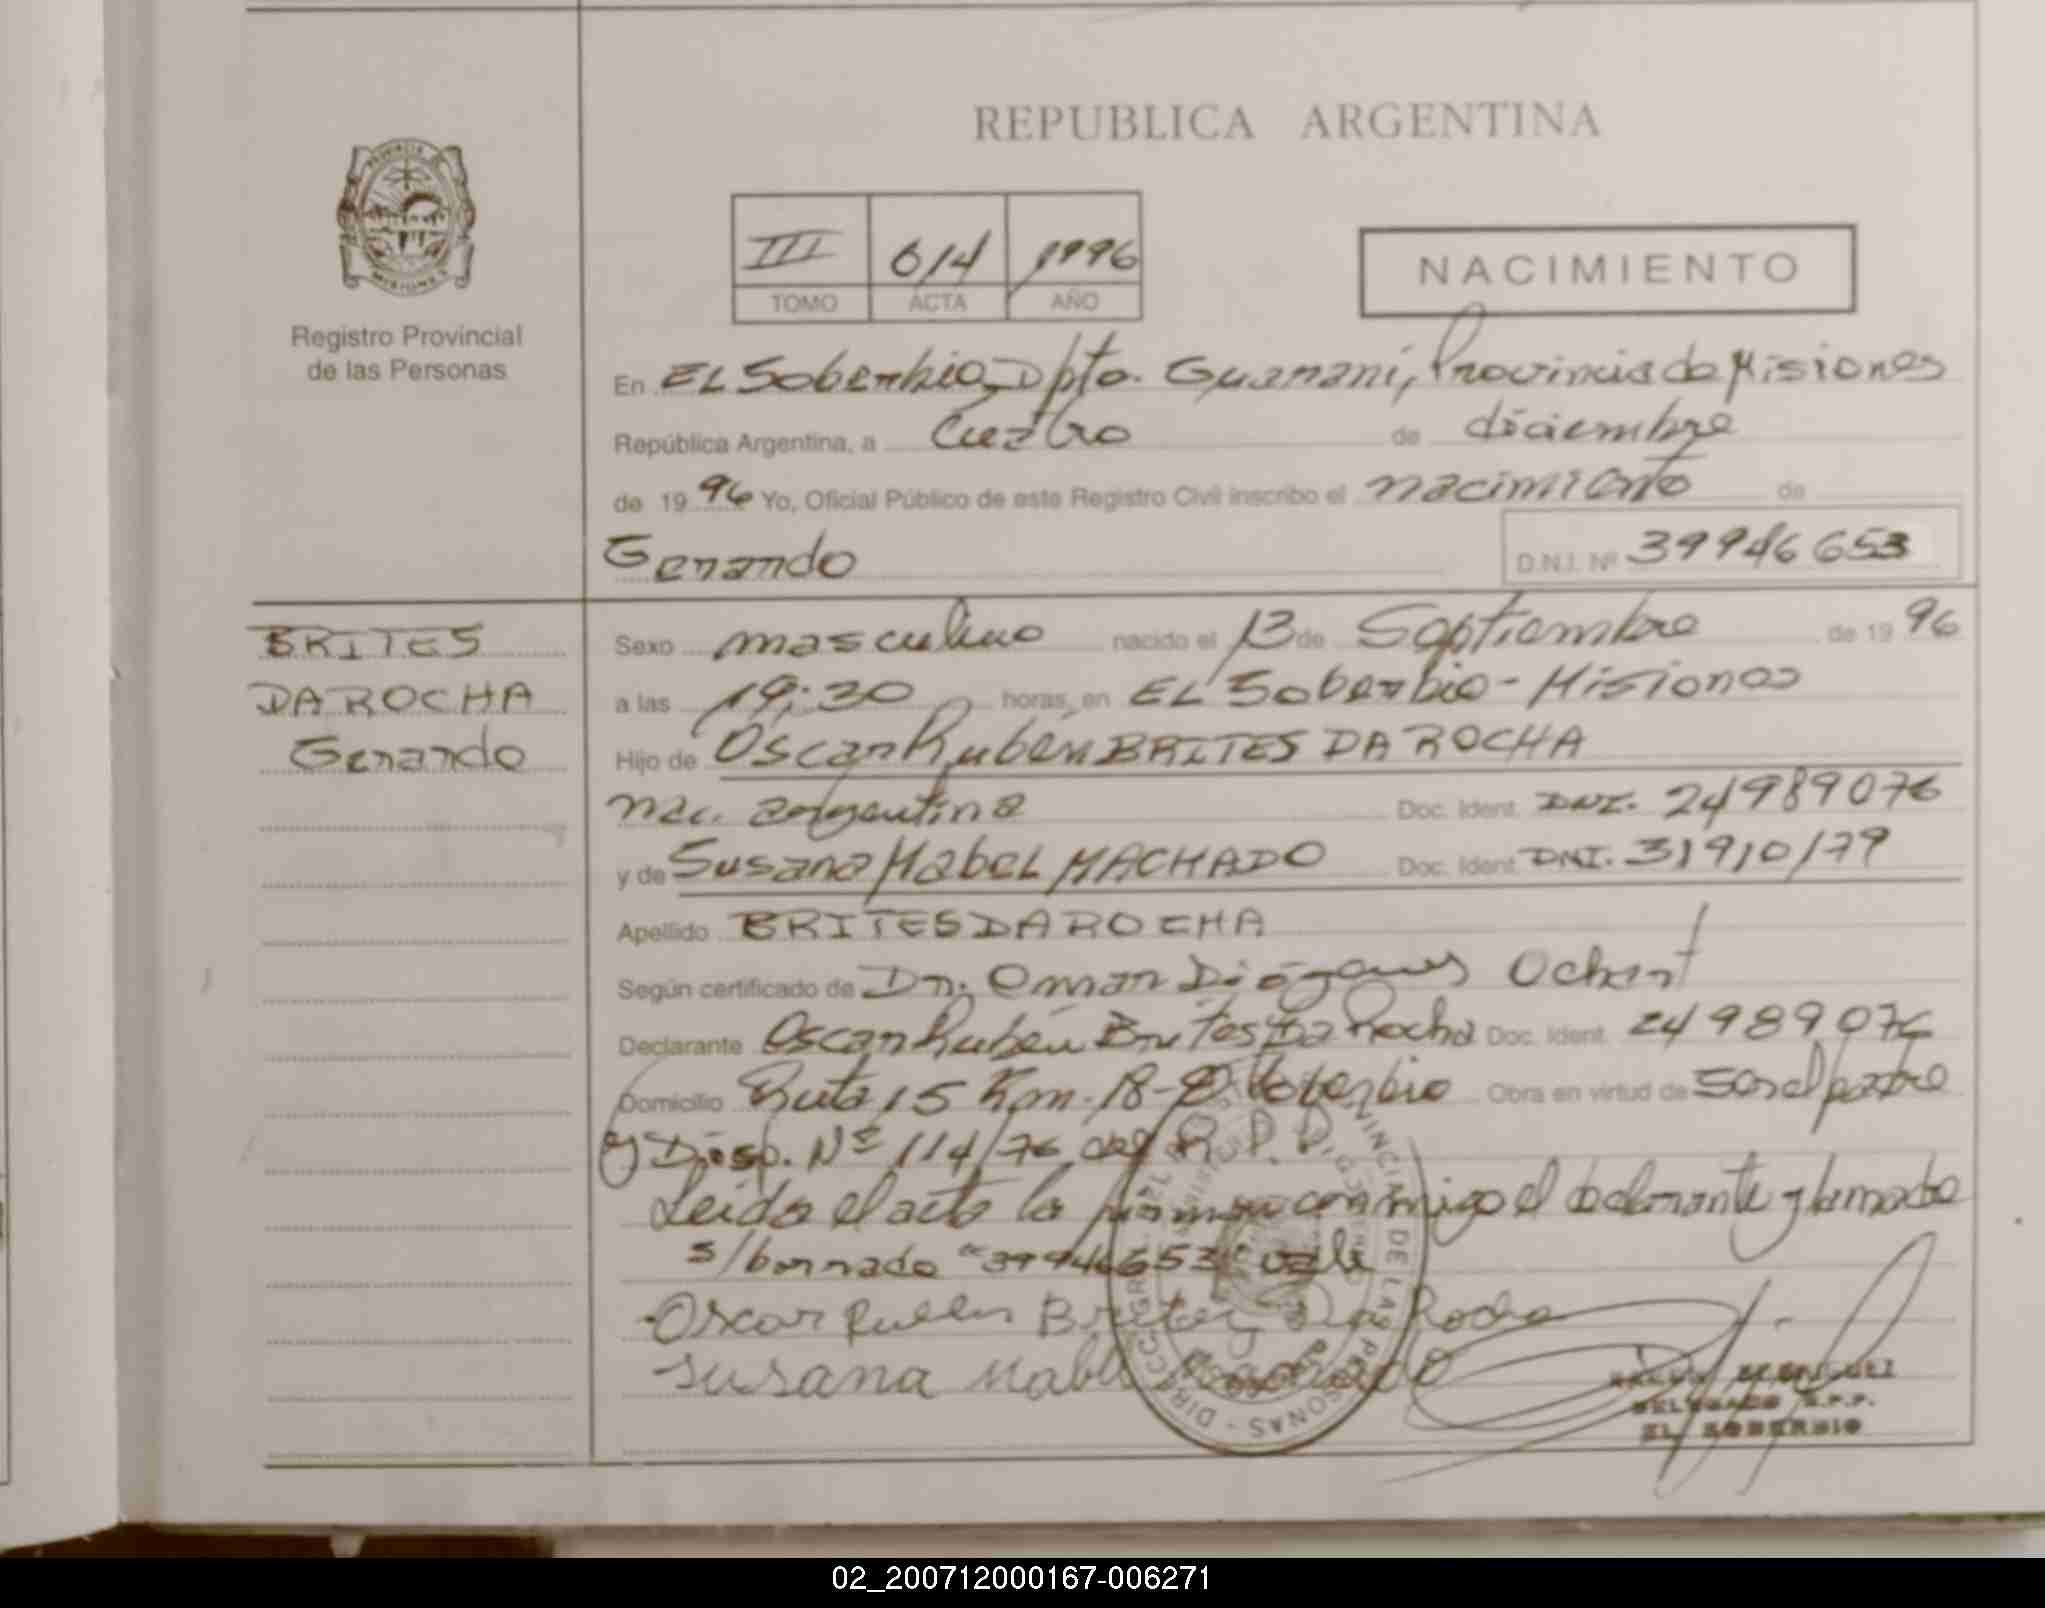 REPUBLICA ARGENTINA
PROVINCIA DE
MISIONES
Registro Provincial
de las Personas
III 614 1996
TOMO ACTA AÑO
NACIMIENTO
En EL Soberbio, Dpto. Guarani, Provincia de Misiones
República Argentina, a Cuatro de diciembre
de 1996 Yo, Oficial Público de este Registro Civil inscribo el nacimiento de
Gerardo D.N.I. Nº 39946653
BRITES
DA ROCHA
Gerardo
Sexo masculino nacido el 13 de Septiembre de 1996
a las 19:30 horas, en EL Soberbio - Misiones
Hijo de Oscar Rubén BRITES DA ROCHA
nac. argentina Doc. Ident. DNI. 24989076
y de Susana Mabel MACHADO Doc. Ident. DNI. 31910179
Apellido BRITES DA ROCHA
Según certificado de Dr. Omar Diógenes
Declarante Oscar Rubén Brites Da Rocha Doc. Ident. 24989076
Domicilio Ruta 15 Km. 18 - El Soberbio Obra en virtud de Ser el padre
y Disp. Nº 114/76 del R. P. P.
Leida el acta la firman conmigo el declarante y la madre
s/borrado "39946653" vale
Oscar Ruben Brites Da Rocha
Susana Mabel Machado
DELEGADO R.P.P.
EL SOBERBIO
02_200712000167-006271